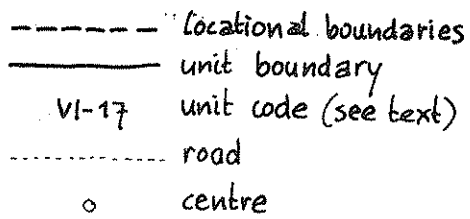 locational boundaries
unit boundary
VI-17 unit code (see text)
road
centre